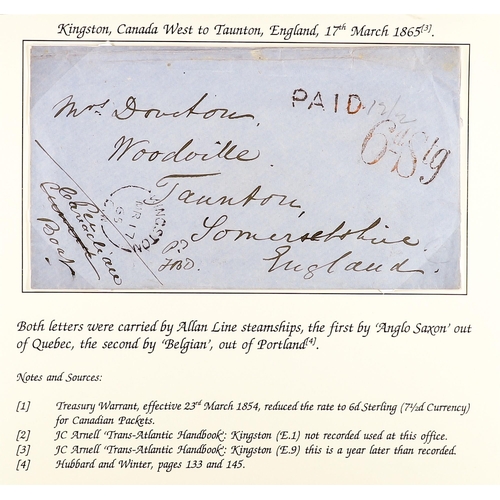 Kingston, Canada West to Taunton, England, 17th March 1865[3].
PAID
Mrs Doveton,
6d Stg
Woodville.
Taunton,
Somersetshire.
England.
Per
Canadian
Boat
KINGSTON
MR 17
65
Both letters were carried by Allan Line steamships, the first by 'Anglo Saxon' out
of Quebec, the second by 'Belgian', out of Portland[4].
Notes and Sources:
[1] Treasury Warrant, effective 23rd March 1854, reduced the rate to 6d Sterling (7½d Currency)
for Canadian Packets.
[2] JC Arnell 'Trans-Atlantic Handbook': Kingston (E.1) not recorded used at this office.
[3] JC Arnell 'Trans-Atlantic Handbook': Kingston (E.9) this is a year later than recorded.
[4] Hubbard and Winter, pages 133 and 145.